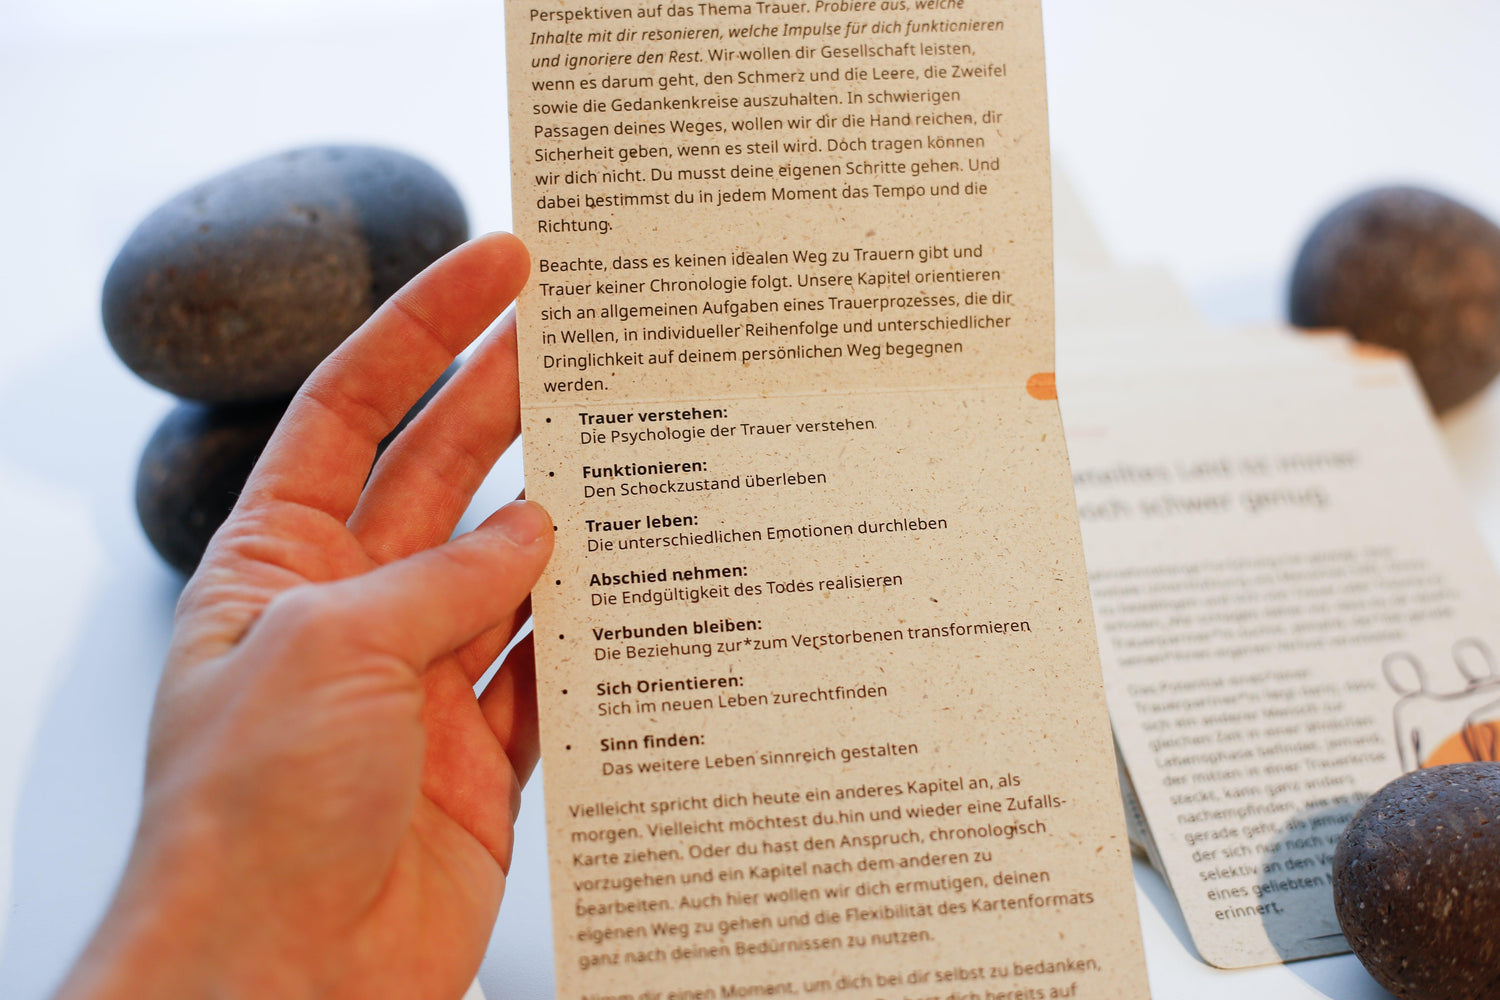 Perspektiven auf das Thema Trauer. Probiere aus, welche
Inhalte mit dir resonieren, welche Impulse für dich funktionieren
und ignoriere den Rest. Wir wollen dir Gesellschaft leisten,
wenn es darum geht, den Schmerz und die Leere, die Zweifel
sowie die Gedankenkreise auszuhalten. In schwierigen
Passagen deines Weges, wollen wir dir die Hand reichen, dir
Sicherheit geben, wenn es steil wird. Doch tragen können
wir dich nicht. Du musst deine eigenen Schritte gehen. Und
dabei bestimmst du in jedem Moment das Tempo und die
Richtung.
Beachte, dass es keinen idealen Weg zu Trauern gibt und
Trauer keiner Chronologie folgt. Unsere Kapitel orientieren
sich an allgemeinen Aufgaben eines Trauerprozesses, die dir
in Wellen, in individueller Reihenfolge und unterschiedlicher
Dringlichkeit auf deinem persönlichen Weg begegnen
werden.
• Trauer verstehen:
Die Psychologie der Trauer verstehen
• Funktionieren:
Den Schockzustand überleben
• Trauer leben:
Die unterschiedlichen Emotionen durchleben
• Abschied nehmen:
Die Endgültigkeit des Todes realisieren
• Verbunden bleiben:
Die Beziehung zur*zum Verstorbenen transformieren
• Sich Orientieren:
Sich im neuen Leben zurechtfinden
• Sinn finden:
Das weitere Leben sinnreich gestalten
Vielleicht spricht dich heute ein anderes Kapitel an, als
morgen. Vielleicht möchtest du hin und wieder eine Zufalls-
Karte ziehen. Oder du hast den Anspruch, chronologisch
vorzugehen und ein Kapitel nach dem anderen zu
bearbeiten. Auch hier wollen wir dich ermutigen, deinen
eigenen Weg zu gehen und die Flexibilität des Kartenformats
ganz nach deinen Bedürfnissen zu nutzen.
Nimm dir einen Moment, um dich bei dir selbst zu bedanken,
dich bereits auf
Leid ist immer
noch schwer genug.
Das Potential
Trauerpartner*in liegt darin, dass
sich ein anderer Mensch zur
gleichen Zeit in einer ähnlichen
Lebensphase befindet, jemand,
der mitten in einer Trauerkrise
steckt, kann ganz anders
nachempfinden, wie es
gerade geht, als
der sich nur noch
selektiv an den
eines geliebten
erinnert.